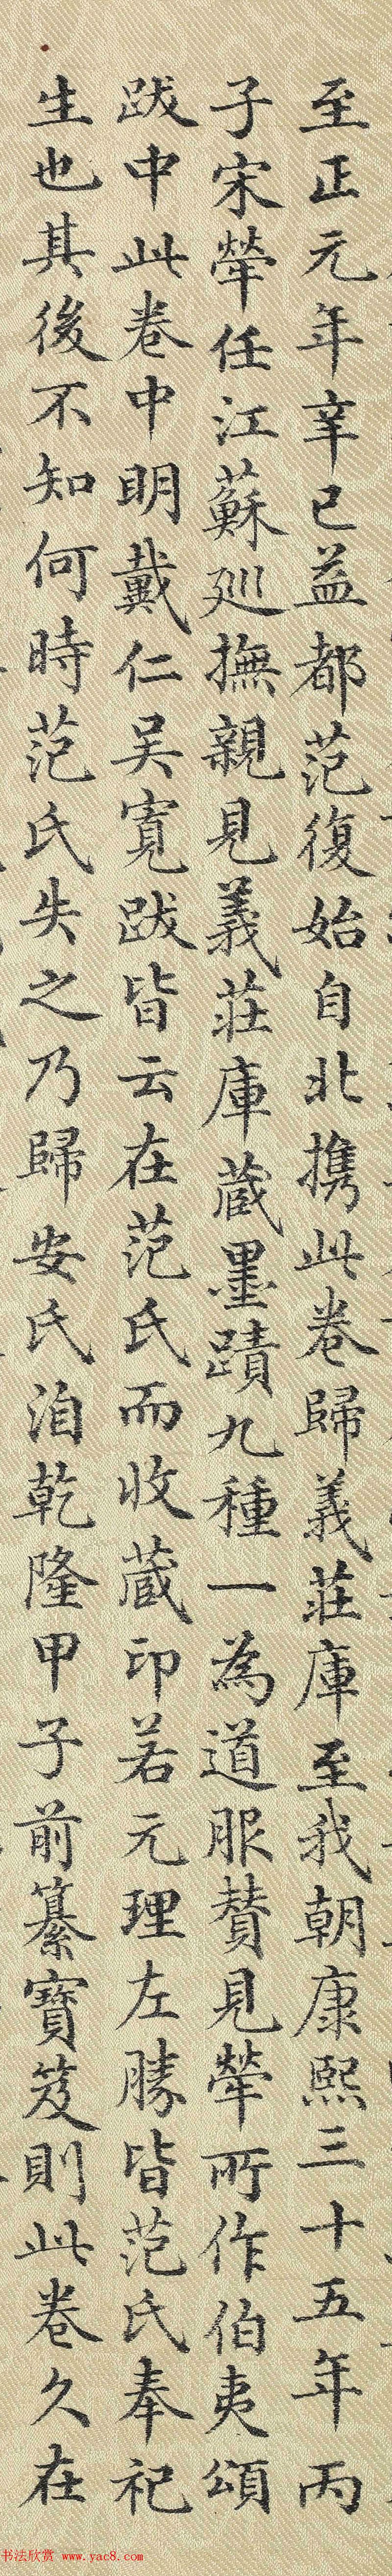 至正元年辛已益都范復始自北攜此卷歸義莊庫至我朝康熙三十五年丙
子宋犖任江蘇廵撫親見義莊庫蔵墨蹟九種一為道服賛見犖所作伯夷頌
跋中此卷中明戴仁吴寛跋皆云在范氏而收蔵印若元理左勝皆范氏奉祀
生也其後不知何時范氏失之乃歸安氏洎乾隆甲子前纂寳笈則此卷久在
书法欣赏 www.yac8.com